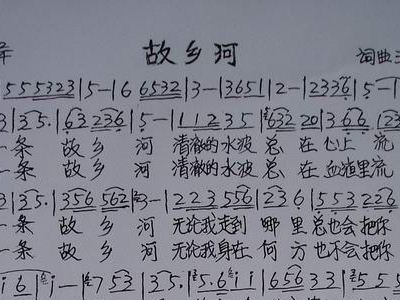 故乡河
词曲
555323|5-|6 6532|3-|3651|2-|2336|5-
3|35.|63 236|5-|11235|632 20|3 66 123
一条 故乡 河 清澈的水波 总 在 心上 流
一条 故乡 河 清澈的水波 总 在 血道里流
3|35.|356 562|3-|223556|236|553226
一条 故乡 河 无论我走到 哪里总也会把你
一条 故乡 河 无论我身在 何方也不会把你
i6|i-|753|35.|5.6ii|65633|555